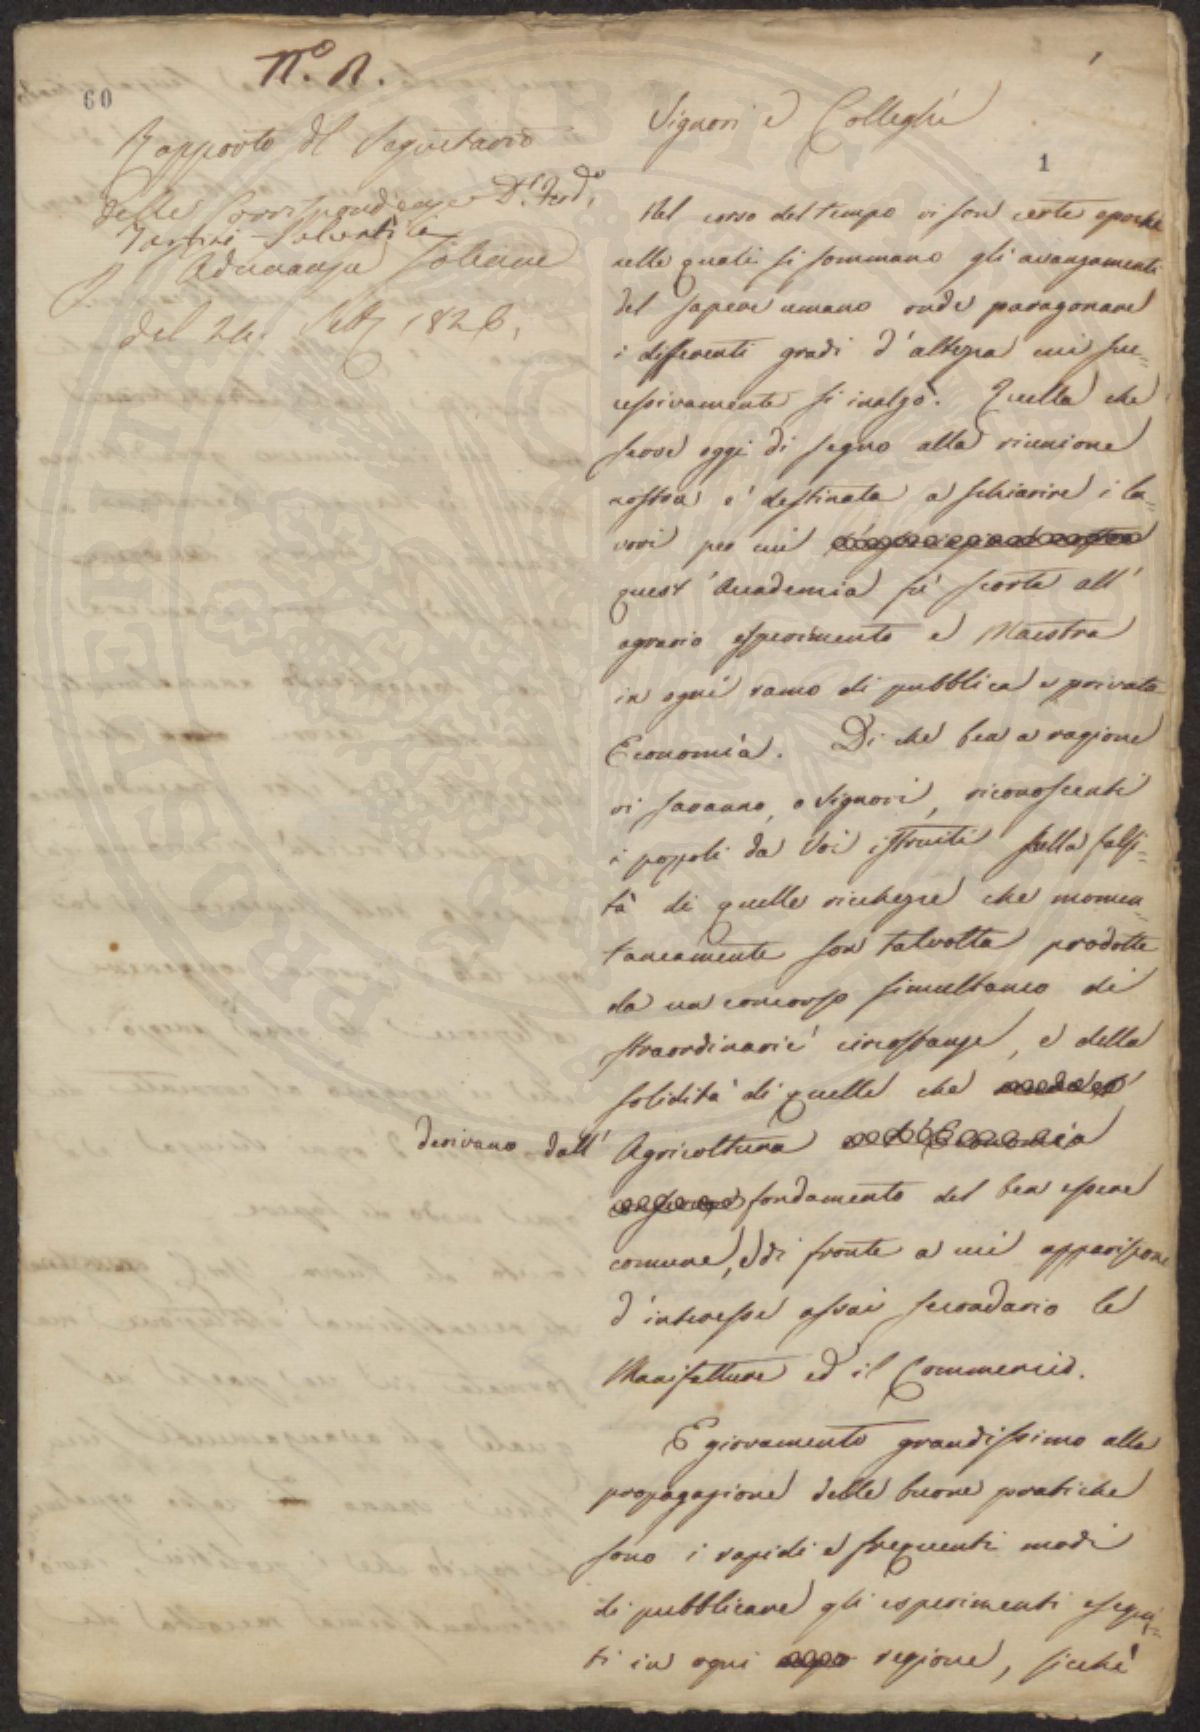 N.º 1.
60
Rapporto del Segretario
delle Corrispondenze Dr. Ferdo.
Tartini-Salvatici
Adunanza Solenne
del 24. Settbr 1826.
Signori e Colleghi
1
Nel corso del tempo vi son certe epoche
nelle quali si sommano gli avanzamenti
del sapere umano onde paragonare
i differenti gradi d'altezza cui suc=
cessivamente si inalzò. Quella che
serve oggi di segno alla riunione
nostra e' destinata a schiarire i la=
vori per cui
quest'Accademia fù scorta all'
agrario esperimento e Maestra
in ogni ramo di pubblica e privata
Economia. Di che ben a ragione
vi saranno, o Signori, riconoscenti
i popoli da Voi istruiti sulla falsi=
tà di quelle ricchezze che momen=
taneamente son talvolta prodotte
da un concorso simultaneo di
straordinarie circostanze, e della
solidità di quelle che
derivano dall' Agricoltura ed Economia
fondamento del ben essere
comune, e di fronte a cui appariscono
d'interesse assai secondario le
Manifatture ed il Commercio.
E giovamento grandissimo alla
propagazione delle buone pratiche
sono i rapidi e frequenti modi
di pubblicare gli esperimenti esegui=
ti in ogni regione, sicchè